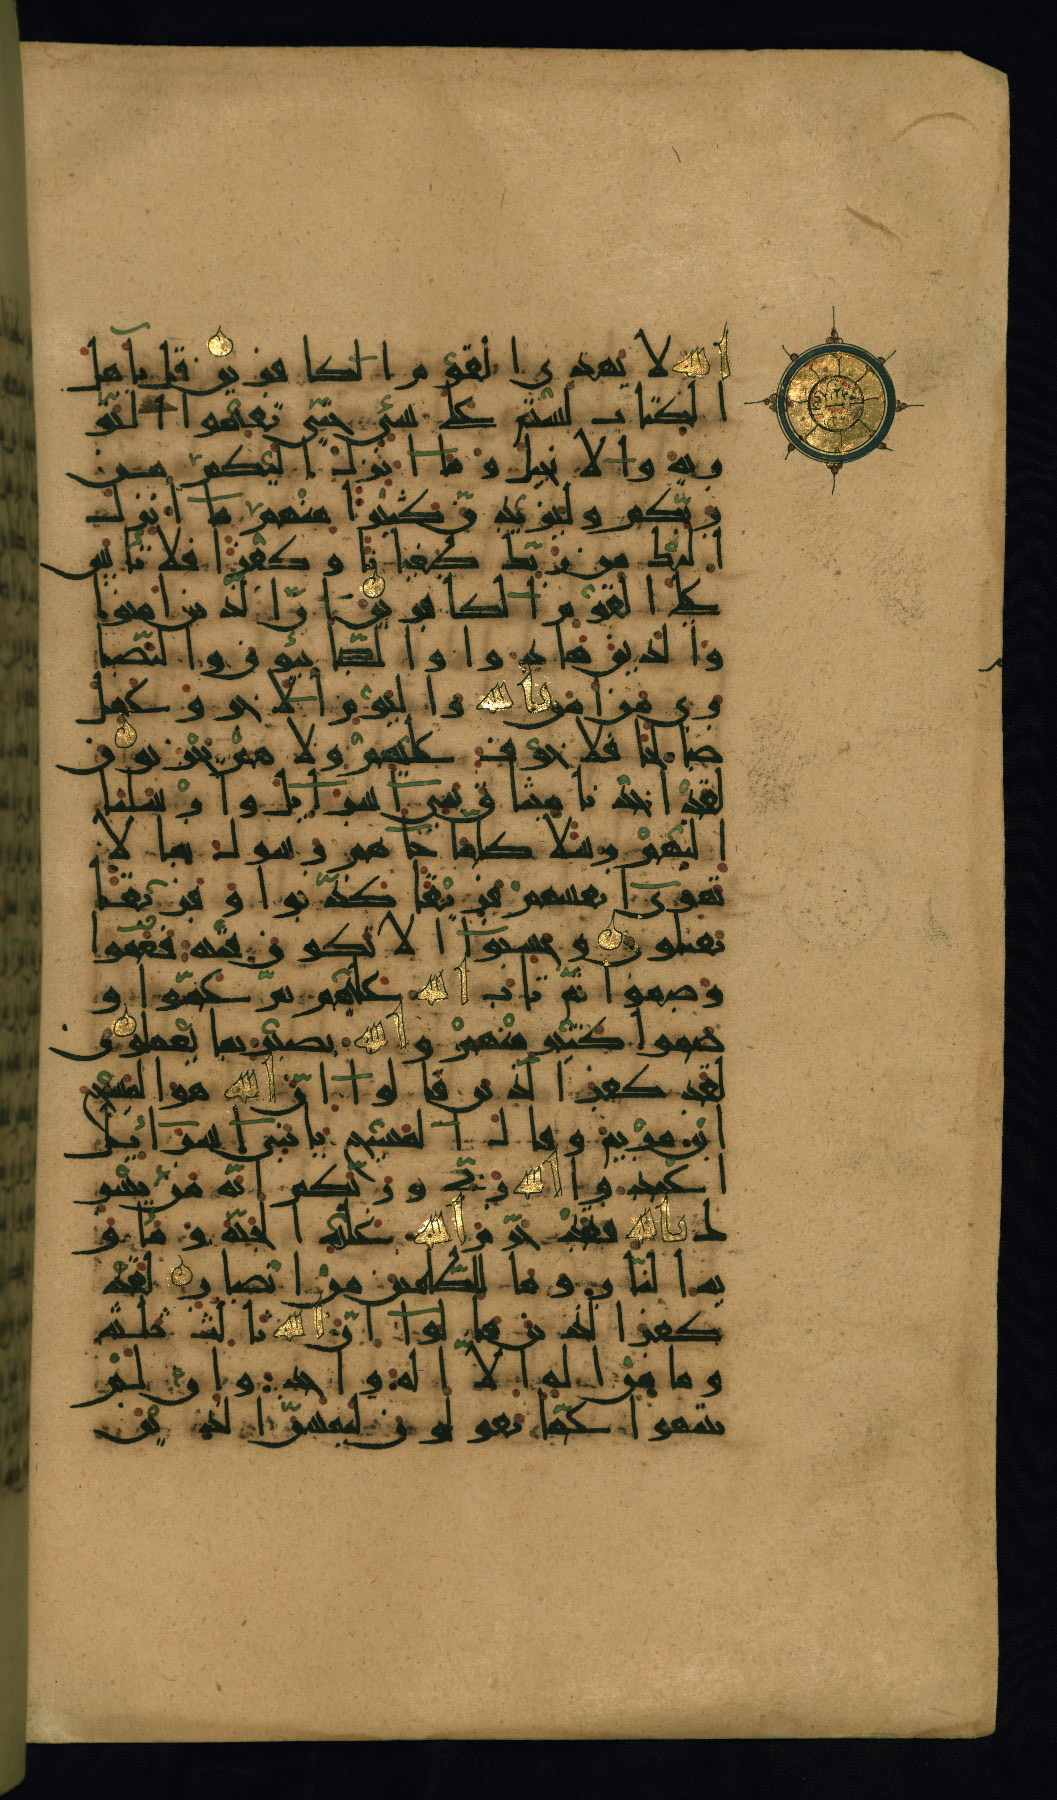 الله لا يهدى القوم الكافرين قل يأهل
الكتاب لستم على شىء حتى تقيموا التو
رية والانجيل وما انزل اليكم من
ربكم وليزيدن كثيرا منهم ما انزل
اليك من ربك طغيانا وكفرا فلا تاس
على القوم الكافرين ان الذين امنوا
والذين هادوا والصابئون والنصا
رى من امن بالله واليوم الاخر وعمل
صالحا فلا خوف عليهم ولا هم يحزنون
لقد اخذنا ميثاق بنى اسرائيل وارسلنا
اليهم رسلا كلما جاهم رسول بما لا
تهوى انفسهم فريقا كذبوا وفريقا
يقتلون وحسبوا الا تكون فتنة فعموا
وصموا ثم تاب الله عليهم ثم عموا و
صموا كثير منهم والله بصير بما يعملون
لقد كفر الذين قالوا ان الله هو المسيح
ابن مريم وقال المسيح يابنى اسرائيل
اعبدوا الله ربى وربكم انه من يشر
ك بالله فقد حرم الله عليه الجنة وماو
يه النار وما للظلمين من انصار لقد
كفر الذين قالوا ان الله ثالث ثلثة
وما من اله الا اله واحد وان لم
ينتهوا عما يقولون ليمسن الذين